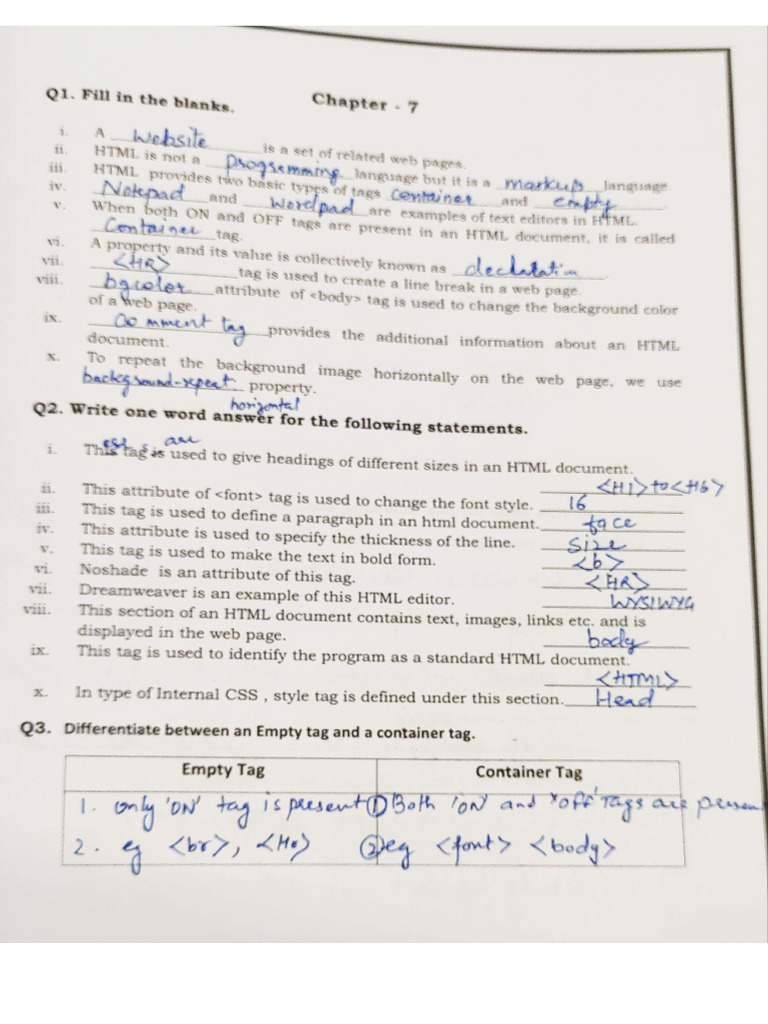 Chapter - 7
Q1. Fill in the blanks.
i. A website is a set of related web pages.
ii. HTML is not a programming language but it is a markup language
iii. HTML provides two basic types of tags container and empty.
iv. Notepad and Wordpad are examples of text editors in HTML.
v. When both ON and OFF tags are present in an HTML document, it is called
Container tag.
vi. A property and its value is collectively known as declaration.
vii. <HR> tag is used to create a line break in a web page.
viii. bgcolor attribute of <body> tag is used to change the background color
of a web page.
ix. Comment tag provides the additional information about an HTML
document.
x. To repeat the background image horizontally on the web page, we use
background-repeat property.
horizontal
Q2. Write one word answer for the following statements.
are
i. This tag is used to give headings of different sizes in an HTML document.
<H1> to <H6>
ii. This attribute of <font> tag is used to change the font style. 16
iii. This tag is used to define a paragraph in an html document. face
iv. This attribute is used to specify the thickness of the line. Size
v. This tag is used to make the text in bold form. <b>
vi. Noshade is an attribute of this tag. <HR>
vii. Dreamweaver is an example of this HTML editor. WYSIWYG
viii. This section of an HTML document contains text, images, links etc. and is
displayed in the web page. body
ix. This tag is used to identify the program as a standard HTML document.
<HTML>
x. In type of Internal CSS , style tag is defined under this section. Head
Q3. Differentiate between an Empty tag and a container tag.
Empty Tag Container Tag
1. only 'ON' tag is present ① Both 'ON' and 'off' Tags are presen
2. eg <br>, <Hr> ② eg <font> <body>